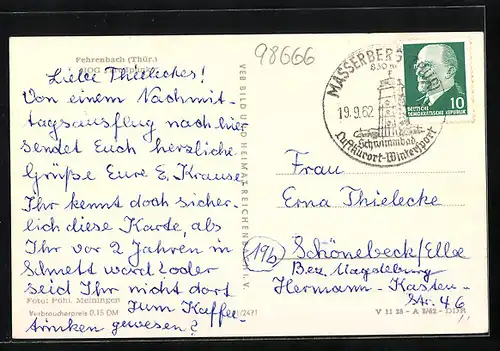 Fehrenbach (Thür.)
98666
Liebe Thieleckes!
Von einem Nachmit-
tagsausflug nach hier
sendet Euch herzliche
Grüße Eure E. Krause
Ihr kennt doch sicher-
lich diese Karte, als
Ihr vor 2 Jahren in
Schnett ward? oder
seid Ihr nicht dort
Foto: Pöhl, Meiningen
zum Kaffee-
Verbraucherpreis 0,15 DM
trinken gewesen?
VEB BILD UND HEIMAT REICHENBACH I. V.
MASSERBERG
830 m
19.9.62
Schwimmbad
Luftkurort-Wintersport
10
DEUTSCHE
DEMOKRATISCHE REPUBLIK
Frau
Erna Thielecke
19b
Schönebeck/Elbe
Bez. Magdeburg
Hermann-Kasten-
Str. 46
V 11 28 - A 3/62 - DDR